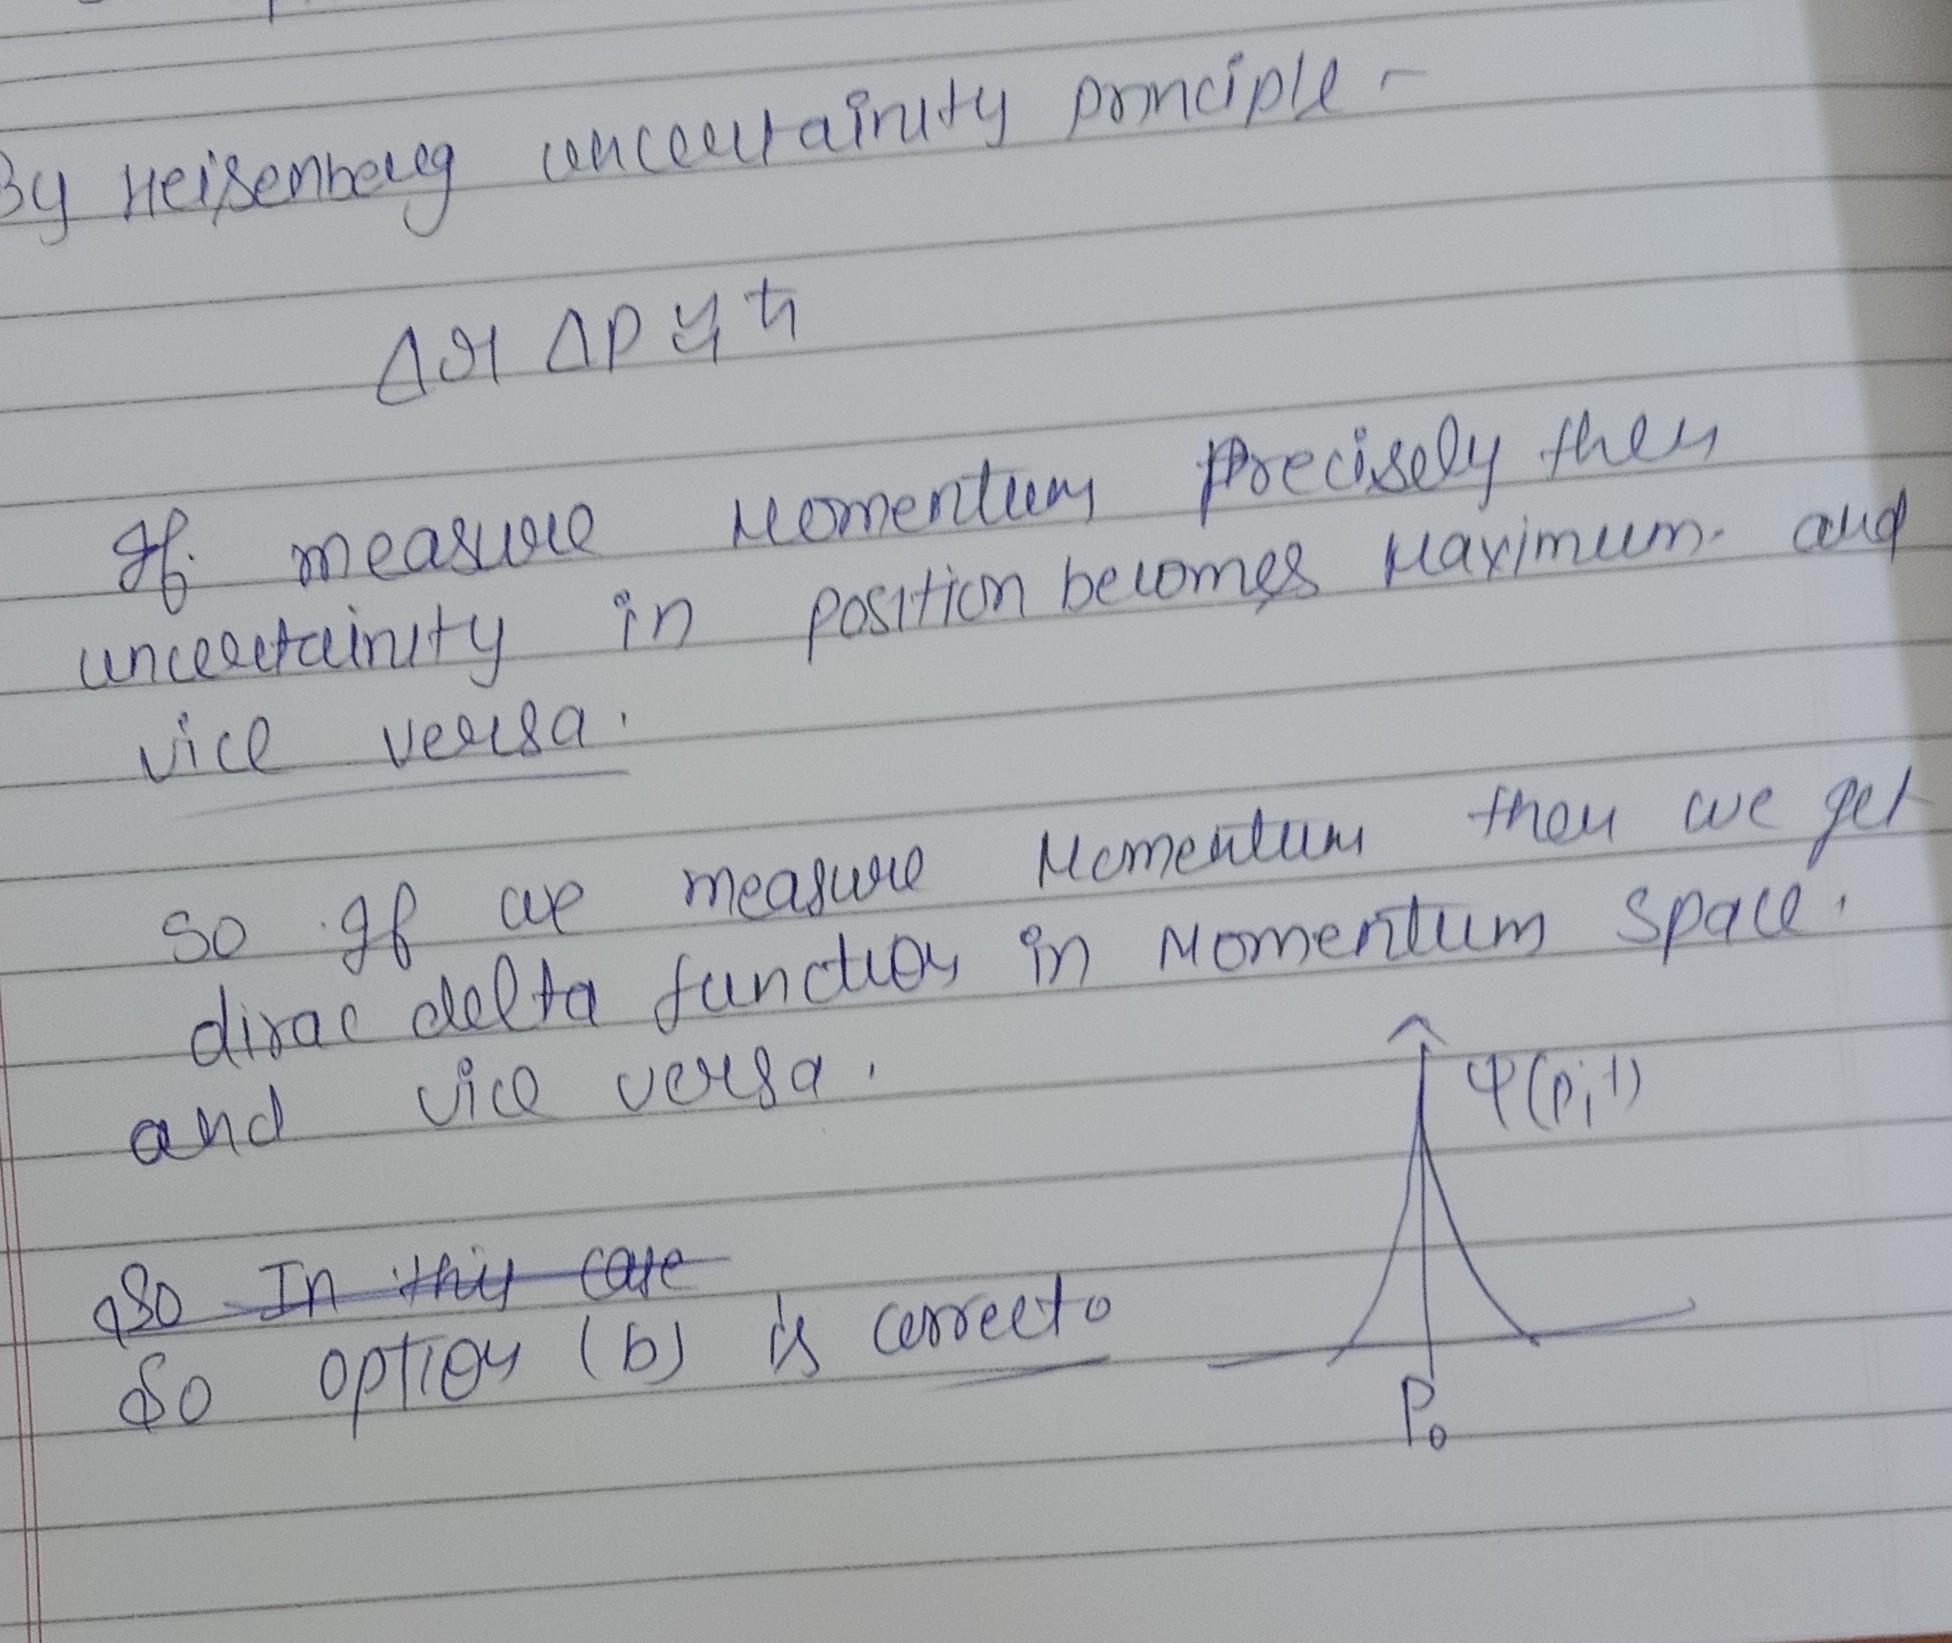 By Heisenberg uncertainity principle -
Δx Δp ≥ ħ
If measure Momentum Precisely then
uncertainity in position becomes Maximum. and
vice versa.
so If we measure Momentum then we get
dirac delta function in Momentum space.
and vice versa.
ψ(p,t)
So In this case
So option (b) is correct.
P₀